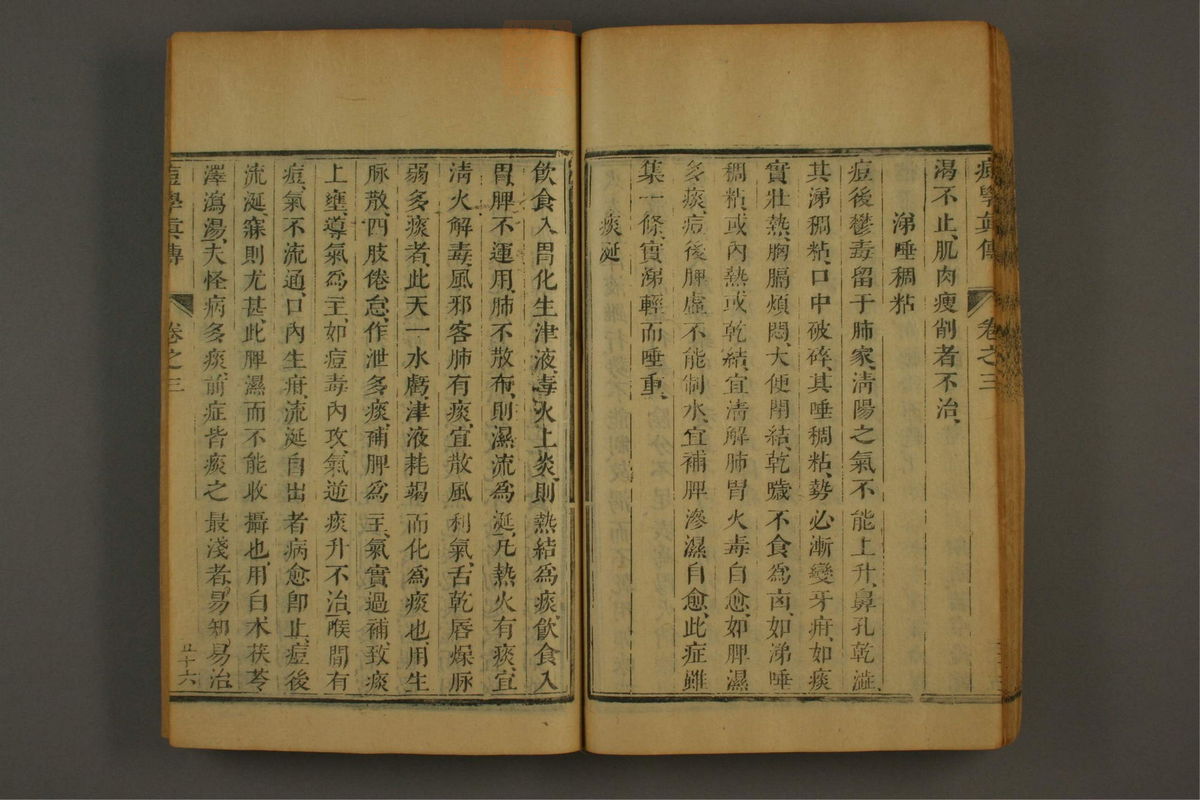 痘學眞傳 卷之三
渴不止、肌肉瘦削者不治、
涕唾稠粘
痘後鬱毒留于肺家、淸陽之氣不能上升、鼻孔乾澁、
其涕稠粘、口中破碎、其唾稠粘、勢必漸變牙疳、如痰
實壯熱、胸膈煩悶、大便閉結、乾嘔不食爲卤、如涕唾
稠粘、或內熱或乾結、宜淸解肺胃火毒自愈、如脾濕
多痰、痘後脾虛不能制水、宜補脾滲濕自愈、此症雖
集一條、實涕輕而唾重、
痰涎
飮食入胃化生津液、毒火上炎、則熱結爲痰、飮食入
胃、脾不運用、肺不散布、則濕流爲涎、凡熱火有痰、宜
淸火解毒、風邪客肺有痰、宜散風利氣、舌乾唇燥脉
弱多痰者、此天一水虧、津液耗竭而化爲痰也、用生
脉散、四肢倦怠、作泄多痰、補脾爲主、氣實過補、致痰
上壅、導氣爲主、如痘毒內攻、氣逆痰升不治、喉間有
痘、氣不流通、口內生疳、流涎自出者、病愈卽止、痘後
流涎、寐則尤甚、此脾濕而不能收攝也、用白朮茯苓
澤瀉湯、夫怪病多痰、前症皆痰之最淺者、易知易治
痘學眞傳 卷之三 五十六